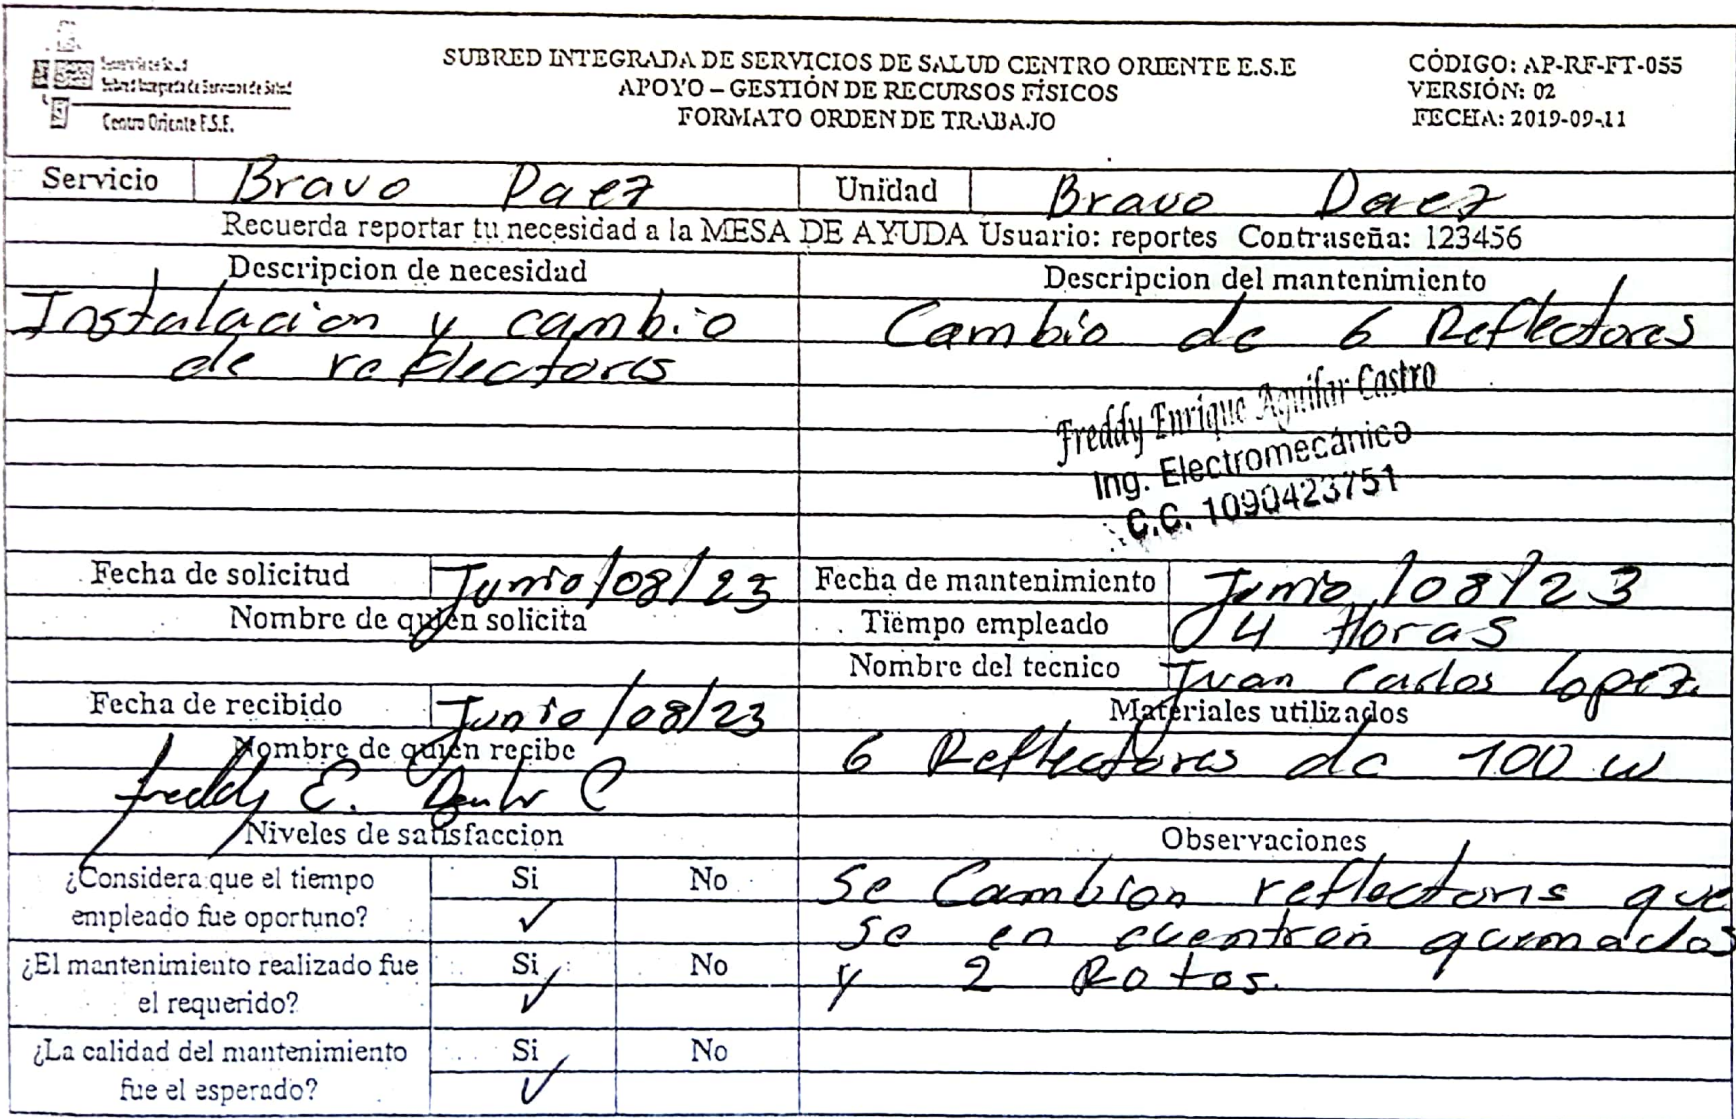 Secretaría de Salud
Subred Integrada de Servicios de Salud
Centro Oriente E.S.E.
SUBRED INTEGRADA DE SERVICIOS DE SALUD CENTRO ORIENTE E.S.E
APOYO – GESTIÓN DE RECURSOS FÍSICOS
FORMATO ORDEN DE TRABAJO
CÓDIGO: AP-RF-FT-055
VERSIÓN: 02
FECHA: 2019-09-11
Servicio Bravo Paez Unidad Bravo Paez
Recuerda reportar tu necesidad a la MESA DE AYUDA Usuario: reportes Contraseña: 123456
Descripcion de necesidad
Instalacion y cambio
de reflectores
Descripcion del mantenimiento
Cambio de 6 Reflectores
Freddy Enrique Aguilar Castro
Ing. Electromecánico
C.C. 1090423751
Fecha de solicitud Junio/08/23
Nombre de quien solicita
Fecha de mantenimiento Junio/08/23
Tiempo empleado 4 Horas
Nombre del tecnico Juan Carlos Lopez.
Fecha de recibido Junio/08/23
Nombre de quien recibe
Freddy E. C
Materiales utilizados
6 Reflectores de 100 w
Niveles de satisfaccion
¿Considera que el tiempo
empleado fue oportuno?
Si No
✓
¿El mantenimiento realizado fue
el requerido?
Si No
✓
¿La calidad del mantenimiento
fue el esperado?
Si No
✓
Observaciones
Se Cambion reflectores que
se en cuentren quemados
y 2 Rotos.